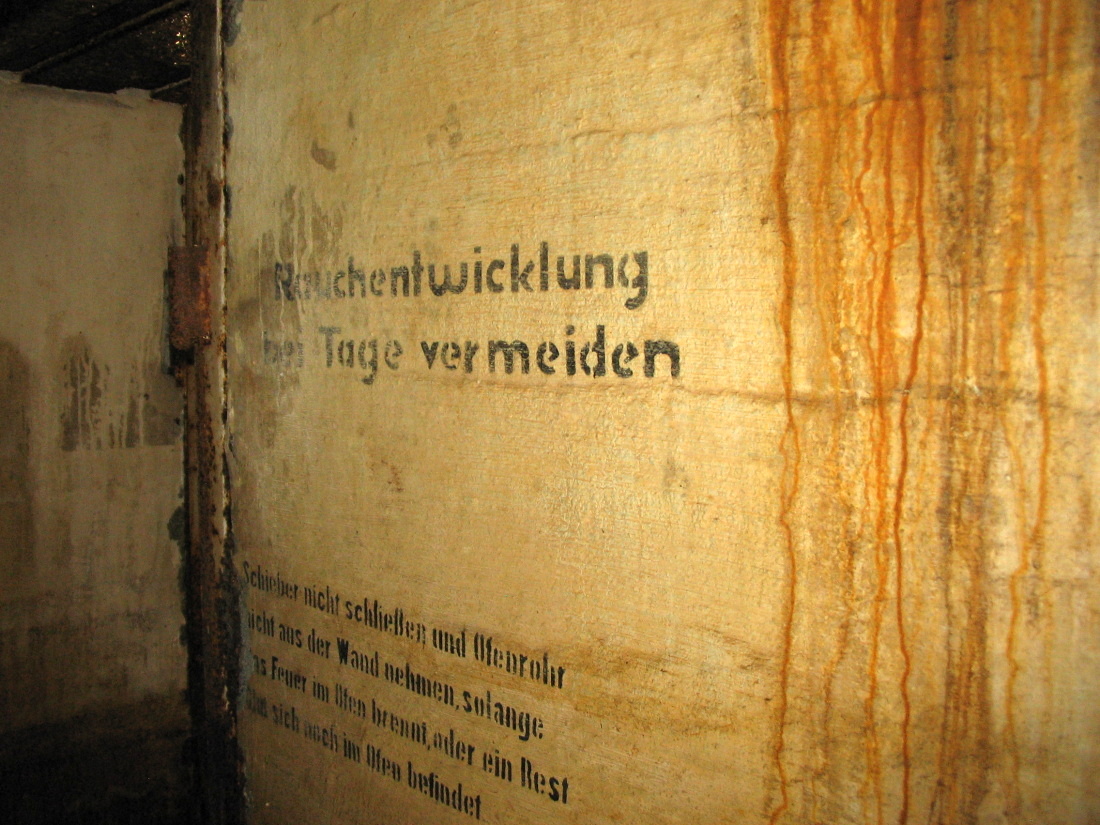 Rauchentwicklung
bei Tage vermeiden
Schieber nicht schließen und Ofenrohr
nicht aus der Wand nehmen, solange
das Feuer im Ofen brennt, oder ein Rest
sich noch im Ofen befindet